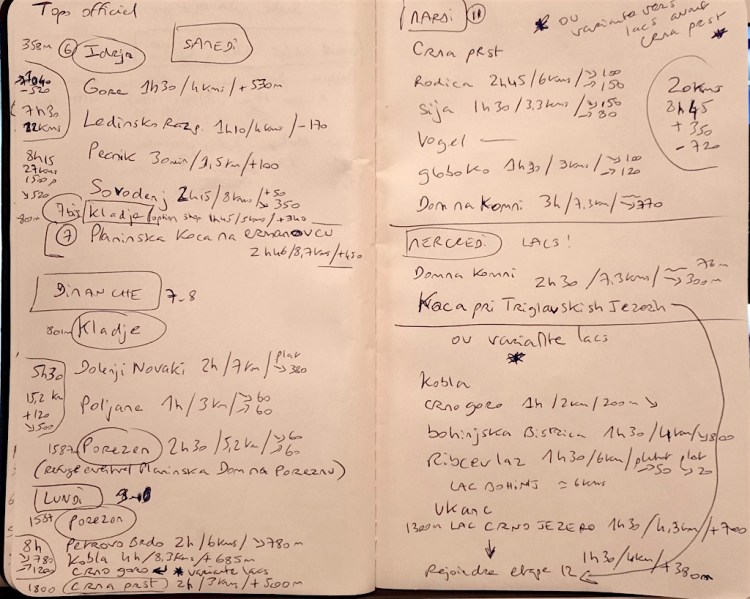 Topo officiel
358m 6 Idrija SAMEDI
Gore 1h30 / 4kms / +530m
-520
7h30
22kms
Ledinsko Razp. 1h10 / 4kms / -170
Pecnik 30min / 1,5km / +100
8h15
27kms
Sovodenj 2h15 / 8kms / +50 ↘ 350
↘520
800m 7bis Kladje (option stop 1h45 / 5kms / +340
7 Planinska Koca na ERMANOVCU
2h46 / 8,7kms / +450
DIMANCHE 7-8
801m Kladje
Dolenji Novaki 2h / 7km / plat ↘ 380
5h30
15,2 km
+120
↘500
Poljane 1h / 3km / ↘ 60 → 60
1587 Porezen 2h30 / 5,2km / ↘ 60 → 60
(refuge eventuel Planinska Dom na Poreznu)
LUNDI
1587 Porezen
8h
↘780
→120
Petrovo Brdo 2h / 6kms / ↘780m
Kobla 4h / 8,3kms / +685m
CRNO goro ← * variante lacs
1800 CRNA PRST 2h / 3km / +500m
MARDI 11
* ou variante vers lacs avant Crna prst *
Crna prst
Rodica 2h45 / 6kms / ↘ 100 → 150
Sija 1h30 / 3.3kms / ↘ 150 → 80
20kms
8h45
+350
-720
Vogel —
globoko 1h30 / 3kms / ↘ 100 → 120
Dom na Komni 3h / 7.3km / → 770
MERCREDI LACS !
Domna Komni 2h30 / 7.3kms / → 300m
Koca pri Triglavskish Jezerih
ou variante lacs
*
Kobla
CRNO goro 1h / 2km / 200m ↘
bohinjska Bistrica 1h30 / 4km / ↘800
Ribcev laz 1h30 / 6km / plutot plat →50 ↘ 20
LAC BOHINJ ≃ 6kms
Ukanc
1300m LAC CRNO JEZERO 1h30 / 4,3km / +700
↓
1h30 / 4km / +380m
Rejoindre etape 12